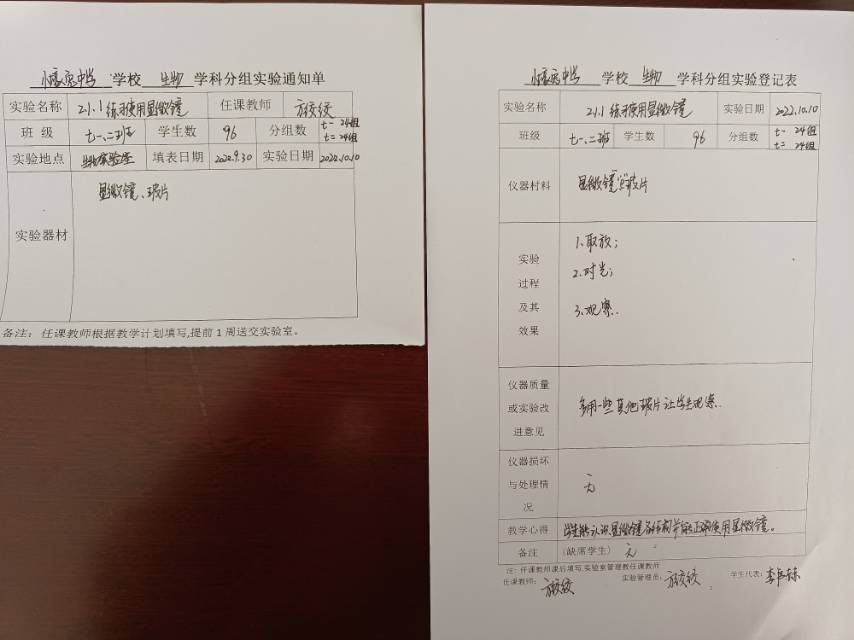 学校 生物 学科分组实验通知单
实验名称 2.1.1 练习使用显微镜 任课教师
班 级 七一、二班 学生数 96 分组数 七一 24组 七二 24组
实验地点 生物实验室 填表日期 2022.9.30 实验日期 2022.10.10
实验器材 显微镜、玻片
备注：任课教师根据教学计划填写,提前 1 周送交实验室。
学校 生物 学科分组实验登记表
实验名称 2.1.1 练习使用显微镜 实验日期 2022.10.10
班级 七一、二班 学生数 96 分组数 七一 24组 七二 24组
仪器材料 显微镜 玻片
实验
过程
及其
效果
1.取放；
2.对光；
3.观察.
仪器质量
或实验改
进意见
多用一些其他玻片让学生观察.
仪器损坏
与处理情
况
无
教学心得 学生能认识显微镜各结构并能正确使用显微镜。
备注 (缺席学生) 无
注：任课教师课后填写,实验室管理教任课教师
任课教师： 实验管理员： 学生代表：